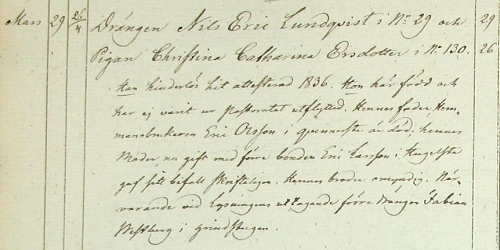 Mars 29 26/4 Drängen Nils Eric Lundqvist i No 29 och 29
Pigan Christina Catharina Ersdotter i No 130. 26
Han hinderlös hit attesterad 1836. Hon här född och
har ej varit ur Pastoratet utflyttad. Hennes fader Hem-
mansbrukaren Eric Olsson i är död, hennes
Moder, nu gift med förre bonden Eric Larsson i
gaf sitt bifall skrifteligen. Hennes broder omyndig. När-
varande vid Lysningens uttagande förre drängen Fabian
Westberg i Grindstugan.